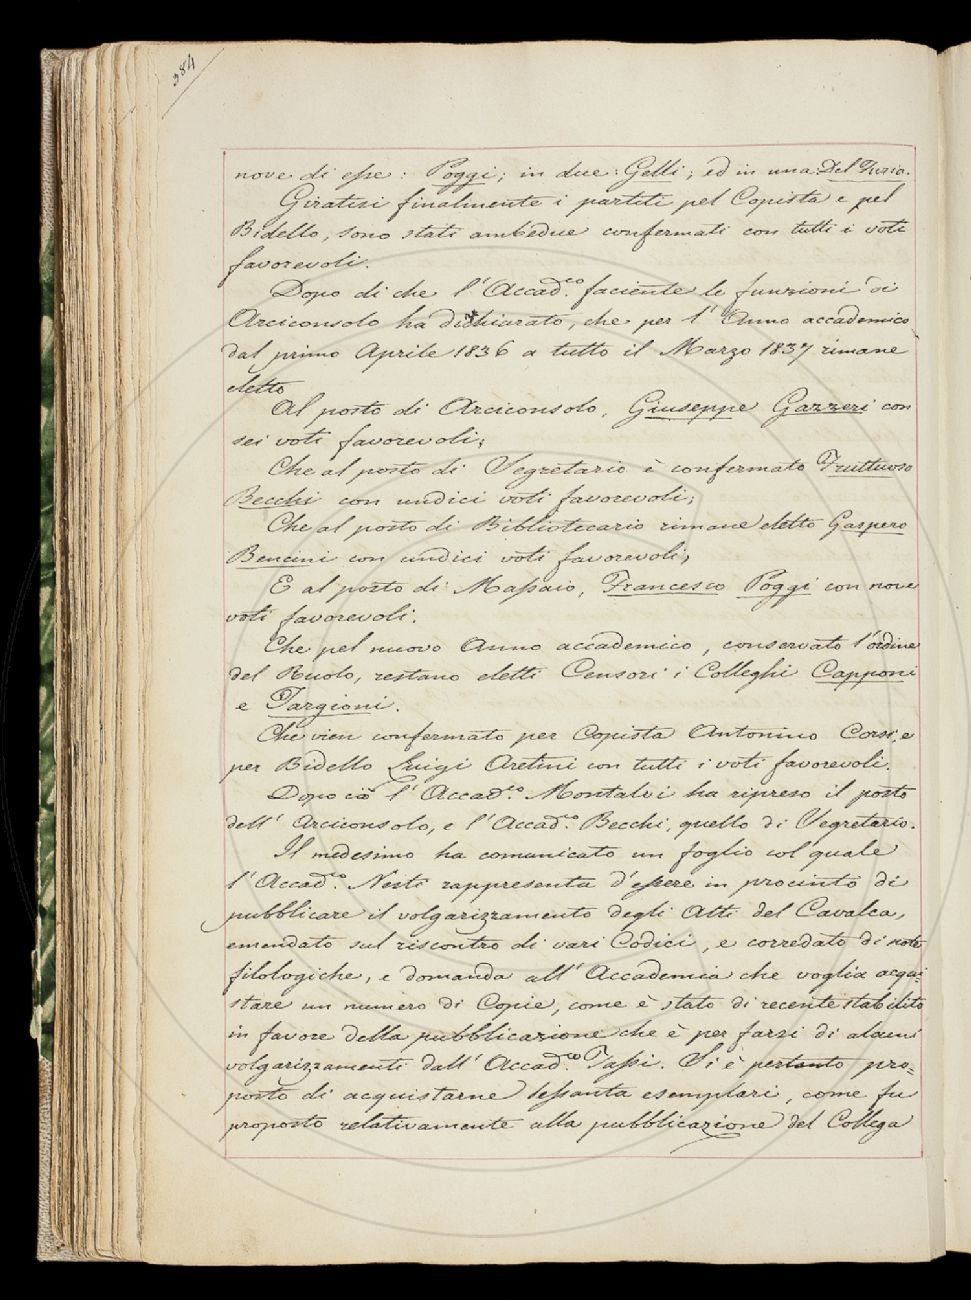 384
nove di esse: Poggi; in due: Gelli; ed in una: Del Furia.
Giratisi finalmente i partiti pel Copista e pel
Bidello, sono stati ambedue confermati con tutti i voti
favorevoli.
Dopo di che l'Accad.co faciente le funzioni di
Arciconsolo ha dichiarato, che per l'Anno accademico
dal primo Aprile 1836 a tutto il Marzo 1837 rimane
eletto
Al posto di Arciconsolo, Giuseppe Gazzeri con
sei voti favorevoli;
Che al posto di Segretario è confermato Fruttuoso
Becchi con undici voti favorevoli;
Che al posto di Bibliotecario rimane eletto Gaspero
Bencini con undici voti favorevoli;
E al posto di Massaio, Francesco Poggi con nove
voti favorevoli.
Che pel nuovo Anno accademico, conservato l'ordine
del Ruolo, restano eletti Censori i Colleghi Capponi
e Targioni.
Che vien confermato per Copista Antonino Corsi, e
per Bidello Luigi Aretini con tutti i voti favorevoli.
Dopo ciò l'Accad.co Montalvi ha ripreso il posto
dell'Arciconsolo, e l'Accad.co Becchi, quello di Segretario.
Il medesimo ha comunicato un foglio col quale
l'Accad.co Nesti rappresenta d'essere in procinto di
pubblicare il volgarizzamento degli Atti del Cavalca,
emendato sul riscontro di vari Codici, e corredato di note
filologiche, e domanda all'Accademia che voglia acqui-
stare un numero di Copie, come è stato di recente stabilito
in favore della pubblicazione che è per farsi di alcuni
volgarizzamenti dall'Accad.co Tassi. Si è pertanto pro=
posto di acquistarne sessanta esemplari, come fu
proposto relativamente alla pubblicazione del Collega